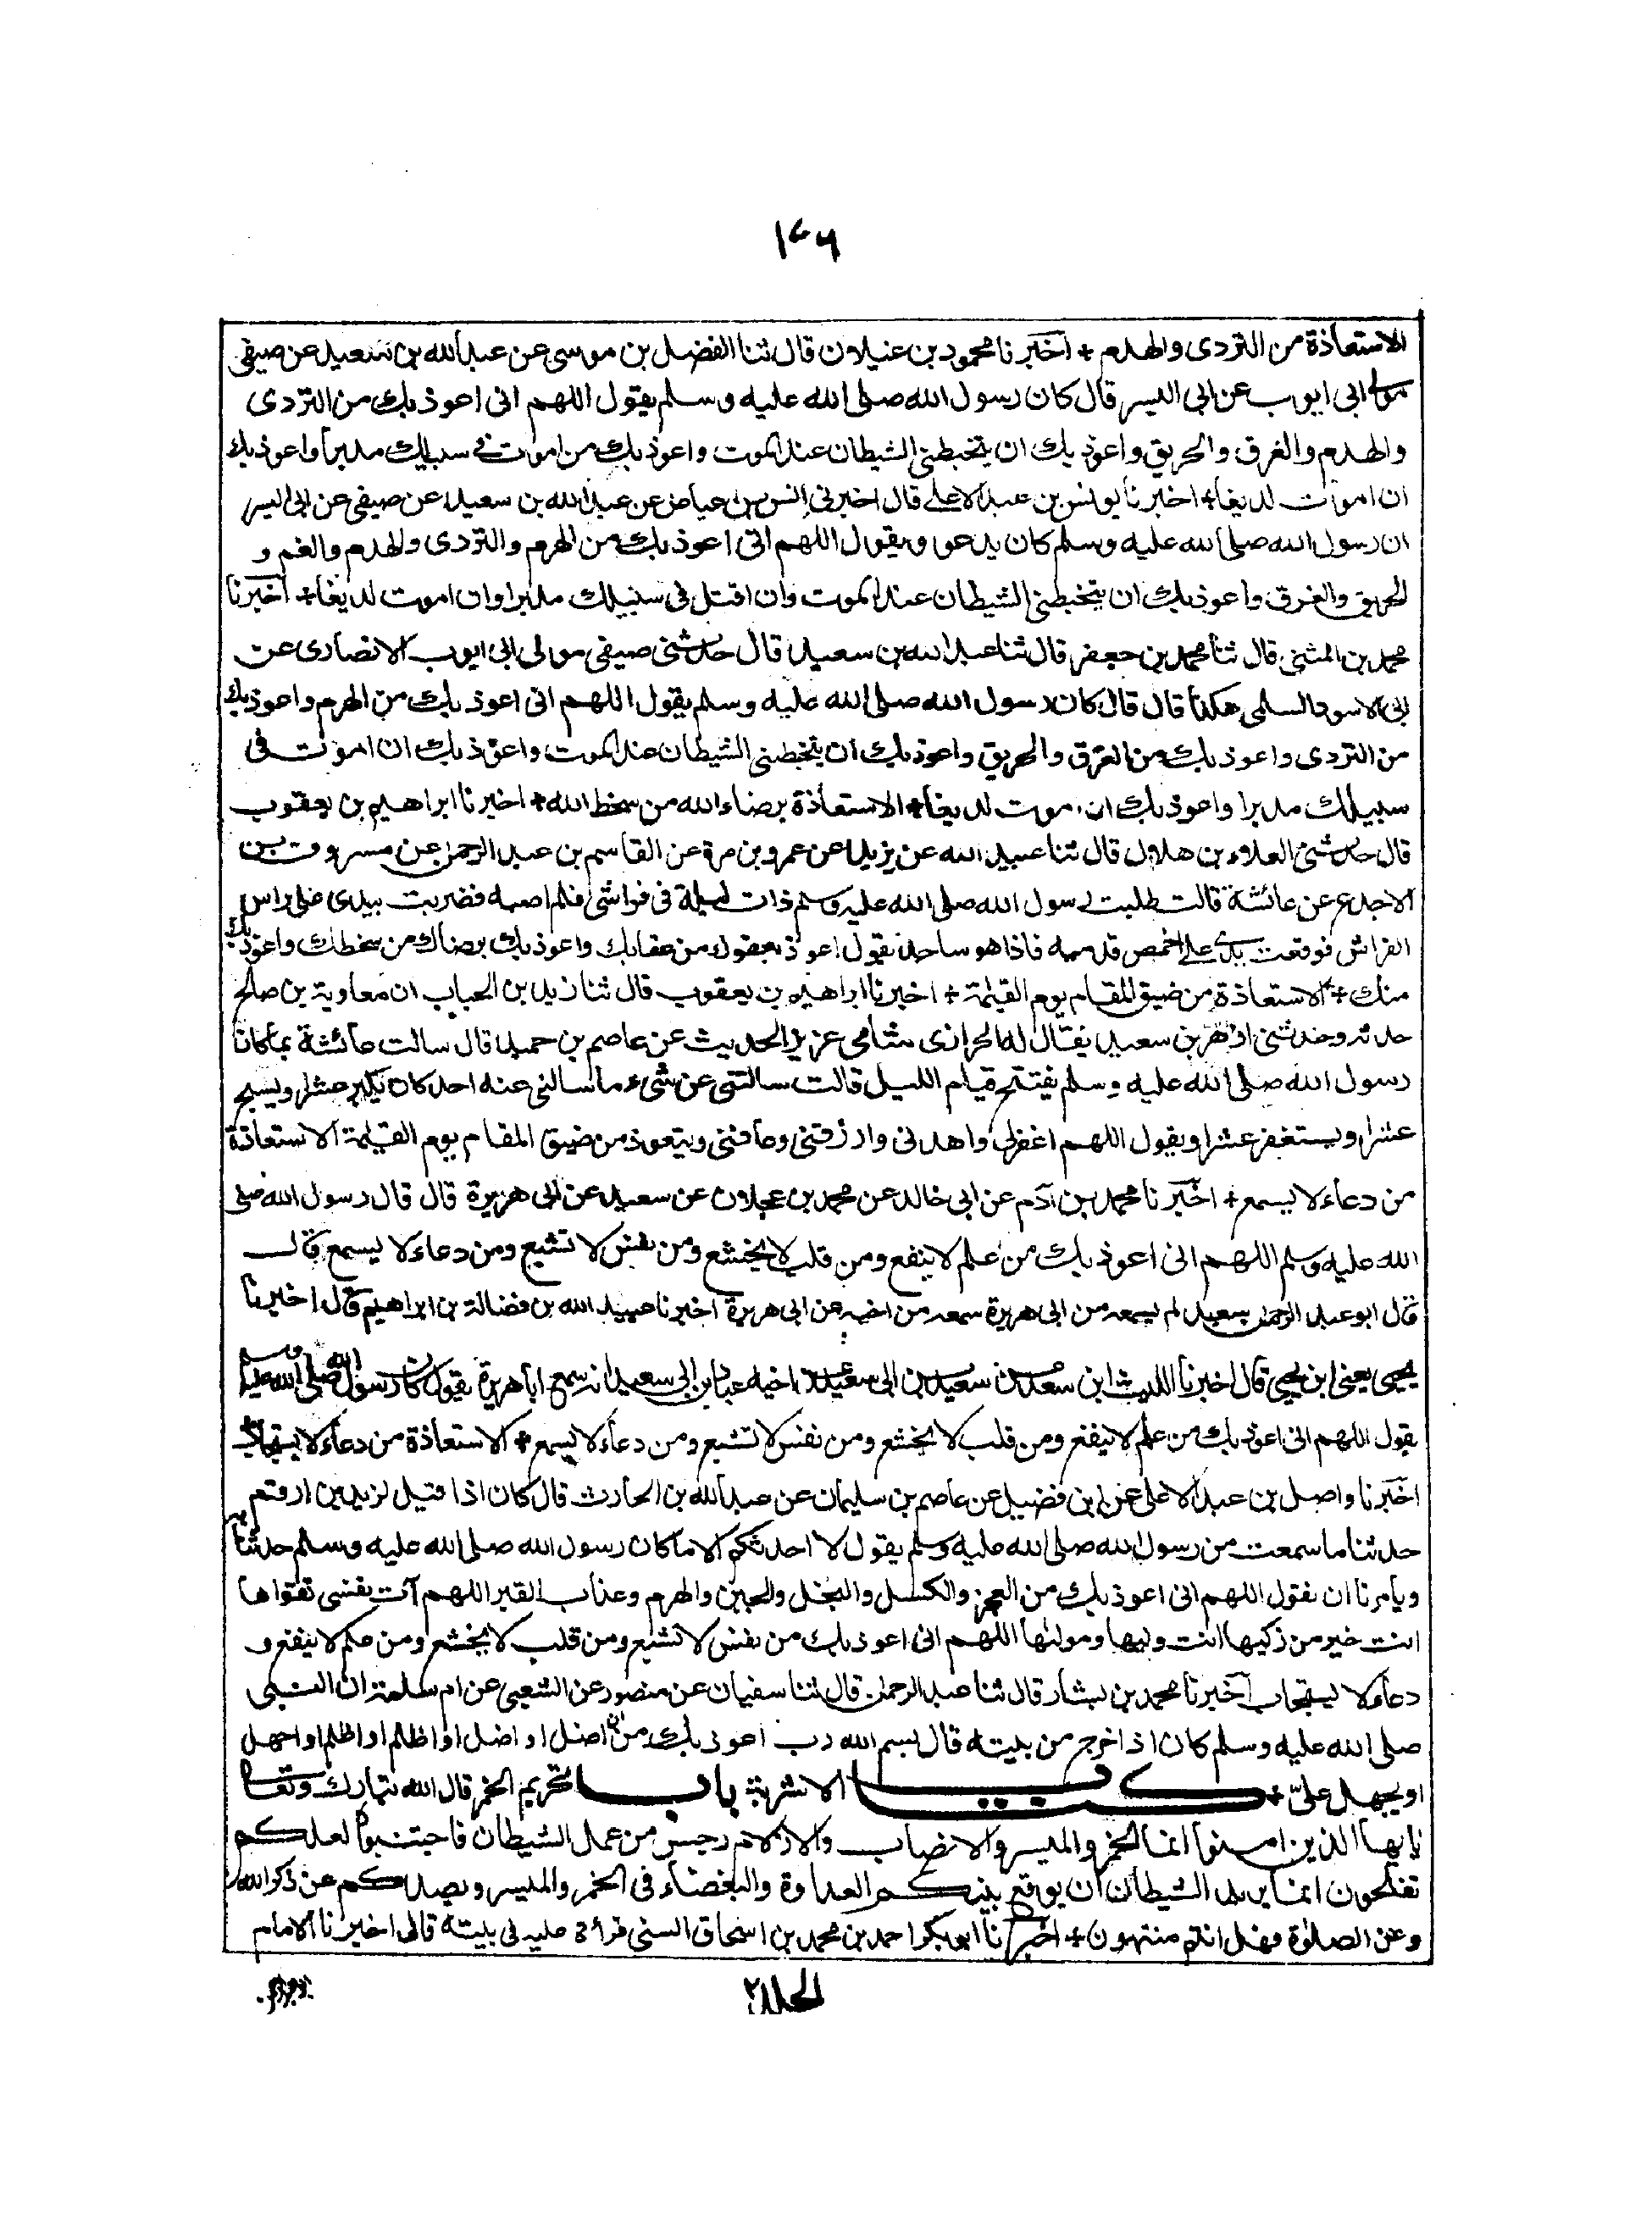 ١٧٦
الاستعاذة من التردى والهدم + اخبرنا محمود بن غيلان قال ثنا الفضل بن موسى عن عبدالله بن سعيد عن صيفى
مولى ابى ايوب عن ابى اليسر قال كان رسول الله صلى الله عليه وسلم يقول اللهم انى اعوذ بك من التردى
والهدم والغرق والحريق واعوذ بك ان يتخبطنى الشيطان عند الموت واعوذ بك من اموت فى سبيلك مدبرا واعوذ بك
ان اموت لديغا + اخبرنا يونس بن عبد الاعلى قال اخبرنى انس بن عياض عن عبد الله بن سعيد عن صيفى عن ابى اليسر
ان رسول الله صلى الله عليه وسلم كان يدعو ويقول اللهم انى اعوذ بك من الهرم والتردى والهدم والغم و
الحريق والغرق واعوذ بك ان يتخبطنى الشيطان عند الموت وان اقتل فى سبيلك مدبرا وان اموت لديغا + اخبرنا
محمد بن المثنى قال ثنا محمد بن جعفر قال ثنا عبد الله بن سعيد قال حدثنى صيفى مولى ابى ايوب الانصارى عن
ابى الاسود السلمى هكذا قال قال كان رسول الله صلى الله عليه وسلم يقول اللهم انى اعوذ بك من الهرم واعوذ بك
من التردى واعوذ بك من الغرق والحريق واعوذ بك ان يتخبطنى الشيطان عند الموت واعوذ بك ان اموت فى
سبيلك مدبرا واعوذ بك ان اموت لديغا + الاستعاذة برضاء الله من سخط الله + اخبرنا ابراهيم بن يعقوب
قال حدثنى العلاء بن هلال قال ثنا عبيد الله عن يزيد عن عمرو بن مرة عن القاسم بن عبد الرحمن عن مسروق بن
الاجدع عن عائشة قالت طلبت رسول الله صلى الله عليه وسلم ذات ليلة فى فراشى فلم اصبه فضربت بيدى على راس
الفراش فوقعت يدى على اخمص قدميه فاذا هو ساجد يقول اعوذ بعفوك من عقابك واعوذ بك برضاك من سخطك واعوذ بك
منك + الاستعاذة من ضيق المقام يوم القيمة + اخبرنا ابراهيم بن يعقوب قال ثنا زيد بن الحباب ان معاوية بن صالح
حدثه وحدثنى ازهر بن سعيد يقال له الحرازى شامى عزيز الحديث عن عاصم بن حميد قال سالت عائشة بما كان
رسول الله صلى الله عليه وسلم يفتتح قيام الليل قالت سالتنى عن شىء ما سالنى عنه احد كان يكبر عشرا ويسبح
عشرا ويستغفر عشرا ويقول اللهم اغفرلى واهدنى وارزقنى وعافنى ويتعوذ من ضيق المقام يوم القيمة الاستعاذة
من دعاء لا يسمع + اخبرنا محمد بن آدم عن ابى خالد عن محمد بن عجلان عن سعيد عن ابى هريرة قال قال رسول الله صلى
الله عليه وسلم اللهم انى اعوذ بك من علم لا ينفع ومن قلب لا يخشع ومن نفس لا تشبع ومن دعاء لا يسمع قال
قال ابو عبد الرحمن سعيد لم يسمعه من ابى هريرة سمعه من اخيه عن ابى هريرة اخبرنا عبيد الله بن فضالة بن ابراهيم قال اخبرنا
يحيى يعنى ابن يحيى قال اخبرنا الليث ابن سعد عن سعيد بن ابى سعيد عن اخيه عباد بن ابى سعيد انه سمع ابا هريرة يقول كان رسول الله صلى الله عليه وسلم
يقول اللهم انى اعوذ بك من علم لا ينفع ومن قلب لا يخشع ومن نفس لا تشبع ومن دعاء لا يسمع + الاستعاذة من دعاء لا يستجاب
اخبرنا واصل بن عبد الاعلى عن ابن فضيل عن عاصم بن سليمان عن عبد الله بن الحارث قال كان اذا قيل لزيد بن ارقم
حدثنا ما سمعت من رسول الله صلى الله عليه وسلم يقول لا احدثكم الا ما كان رسول الله صلى الله عليه وسلم حدثنا به
ويامرنا ان نقول اللهم انى اعوذ بك من العجز والكسل والبخل والجبن والهرم وعذاب القبر اللهم آت نفسى تقواها
انت خير من زكيها انت وليها ومولٰها اللهم انى اعوذ بك من نفس لا تشبع ومن قلب لا يخشع ومن علم لا ينفع و
دعاء لا يستجاب اخبرنا محمد بن بشار قال ثنا عبد الرحمن قال ثنا سفيان عن منصور عن الشعبى عن ام سلمة ان النبى
صلى الله عليه وسلم كان اذا خرج من بيته قال بسم الله رب اعوذ بك من ان اضل او اضل او اظلم او اظلم او اجهل
او يجهل علىّ + كتاب الاشربة باب تحريم الخمر قال الله تبارك وتعا
يايها الذين امنوا انما الخمر والميسر والانصاب والازلام رجس من عمل الشيطان فاجتنبوه لعلكم
تفلحون انما يريد الشيطان ان يوقع بينكم العداوة والبغضاء فى الخمر والميسر ويصدكم عن ذكر الله
وعن الصلوة فهل انتم منتهون + اخبرنا ابو بكر احمد بن محمد بن اسحاق السنى قراءة عليه فى بيته قال اخبرنا الامام